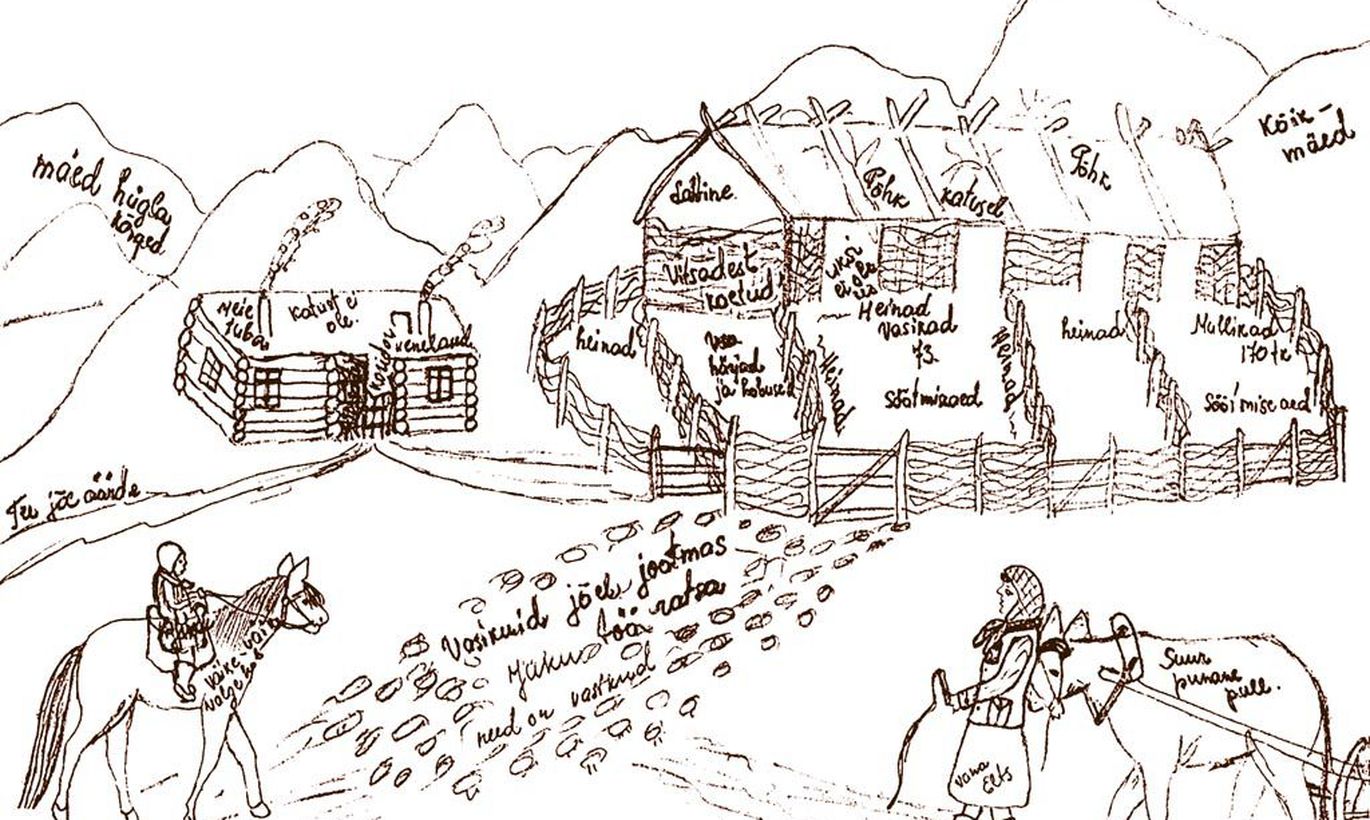 mäed hügla
kõrged
Kõik
mäed
Põhk
katusel
Põhk
Vitsadest
koetud
Meie
tuba
katust ei
ole.
venelased
uksi
ei ole
heinad
Heinad
Vasikad
73.
Söötmisaed
Heinad
Heinad
heinad
Mullikad
170 tk
Söötmise aed
härjad
ja hobused
Tee jõe äärde
Vasikuid jõele jootmas
töö ratsa
need on vasikuid
väike vaid
valge
Suur
punane
pull.
vana
Elts